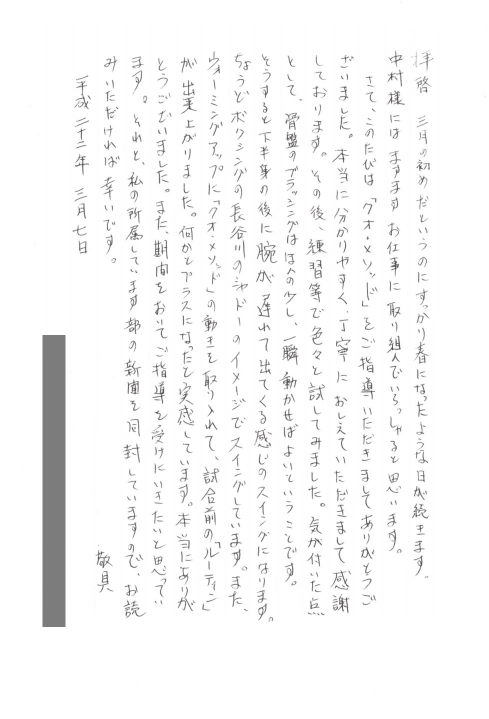 拝啓　三月の初めだというのにすっかり春になったような日が続きます。
中村様にはますますお仕事に取り組んでいらっしゃると思います。
さて、このたびは「クオ・メソッド」をご指導いただきましてありがとうご
ざいました。本当に分かりやすく、丁寧におしえていただきまして感謝
しております。その後、練習等で色々と試してみました。気が付いた点
として、骨盤のブラッシングはほんの少し、一瞬動かせばよいということです。
そうすると下半身の後に腕が遅れて出てくる感じのスイングになります。
ちょうどボクシングの長谷川のシャドーのイメージでスイングしています。また、
ウォーミングアップに「クオ・メソッド」の動きを取り入れて、試合前の「ルーティン」
が出来上がりました。何かとプラスになったと実感しています。本当にありが
とうございました。また、期間をおいてご指導を受けにいきたいと思ってい
ます。それと、私の所属しています部の新聞を同封していますので、お読
みいただければ幸いです。
敬具
平成二十二年　三月七日